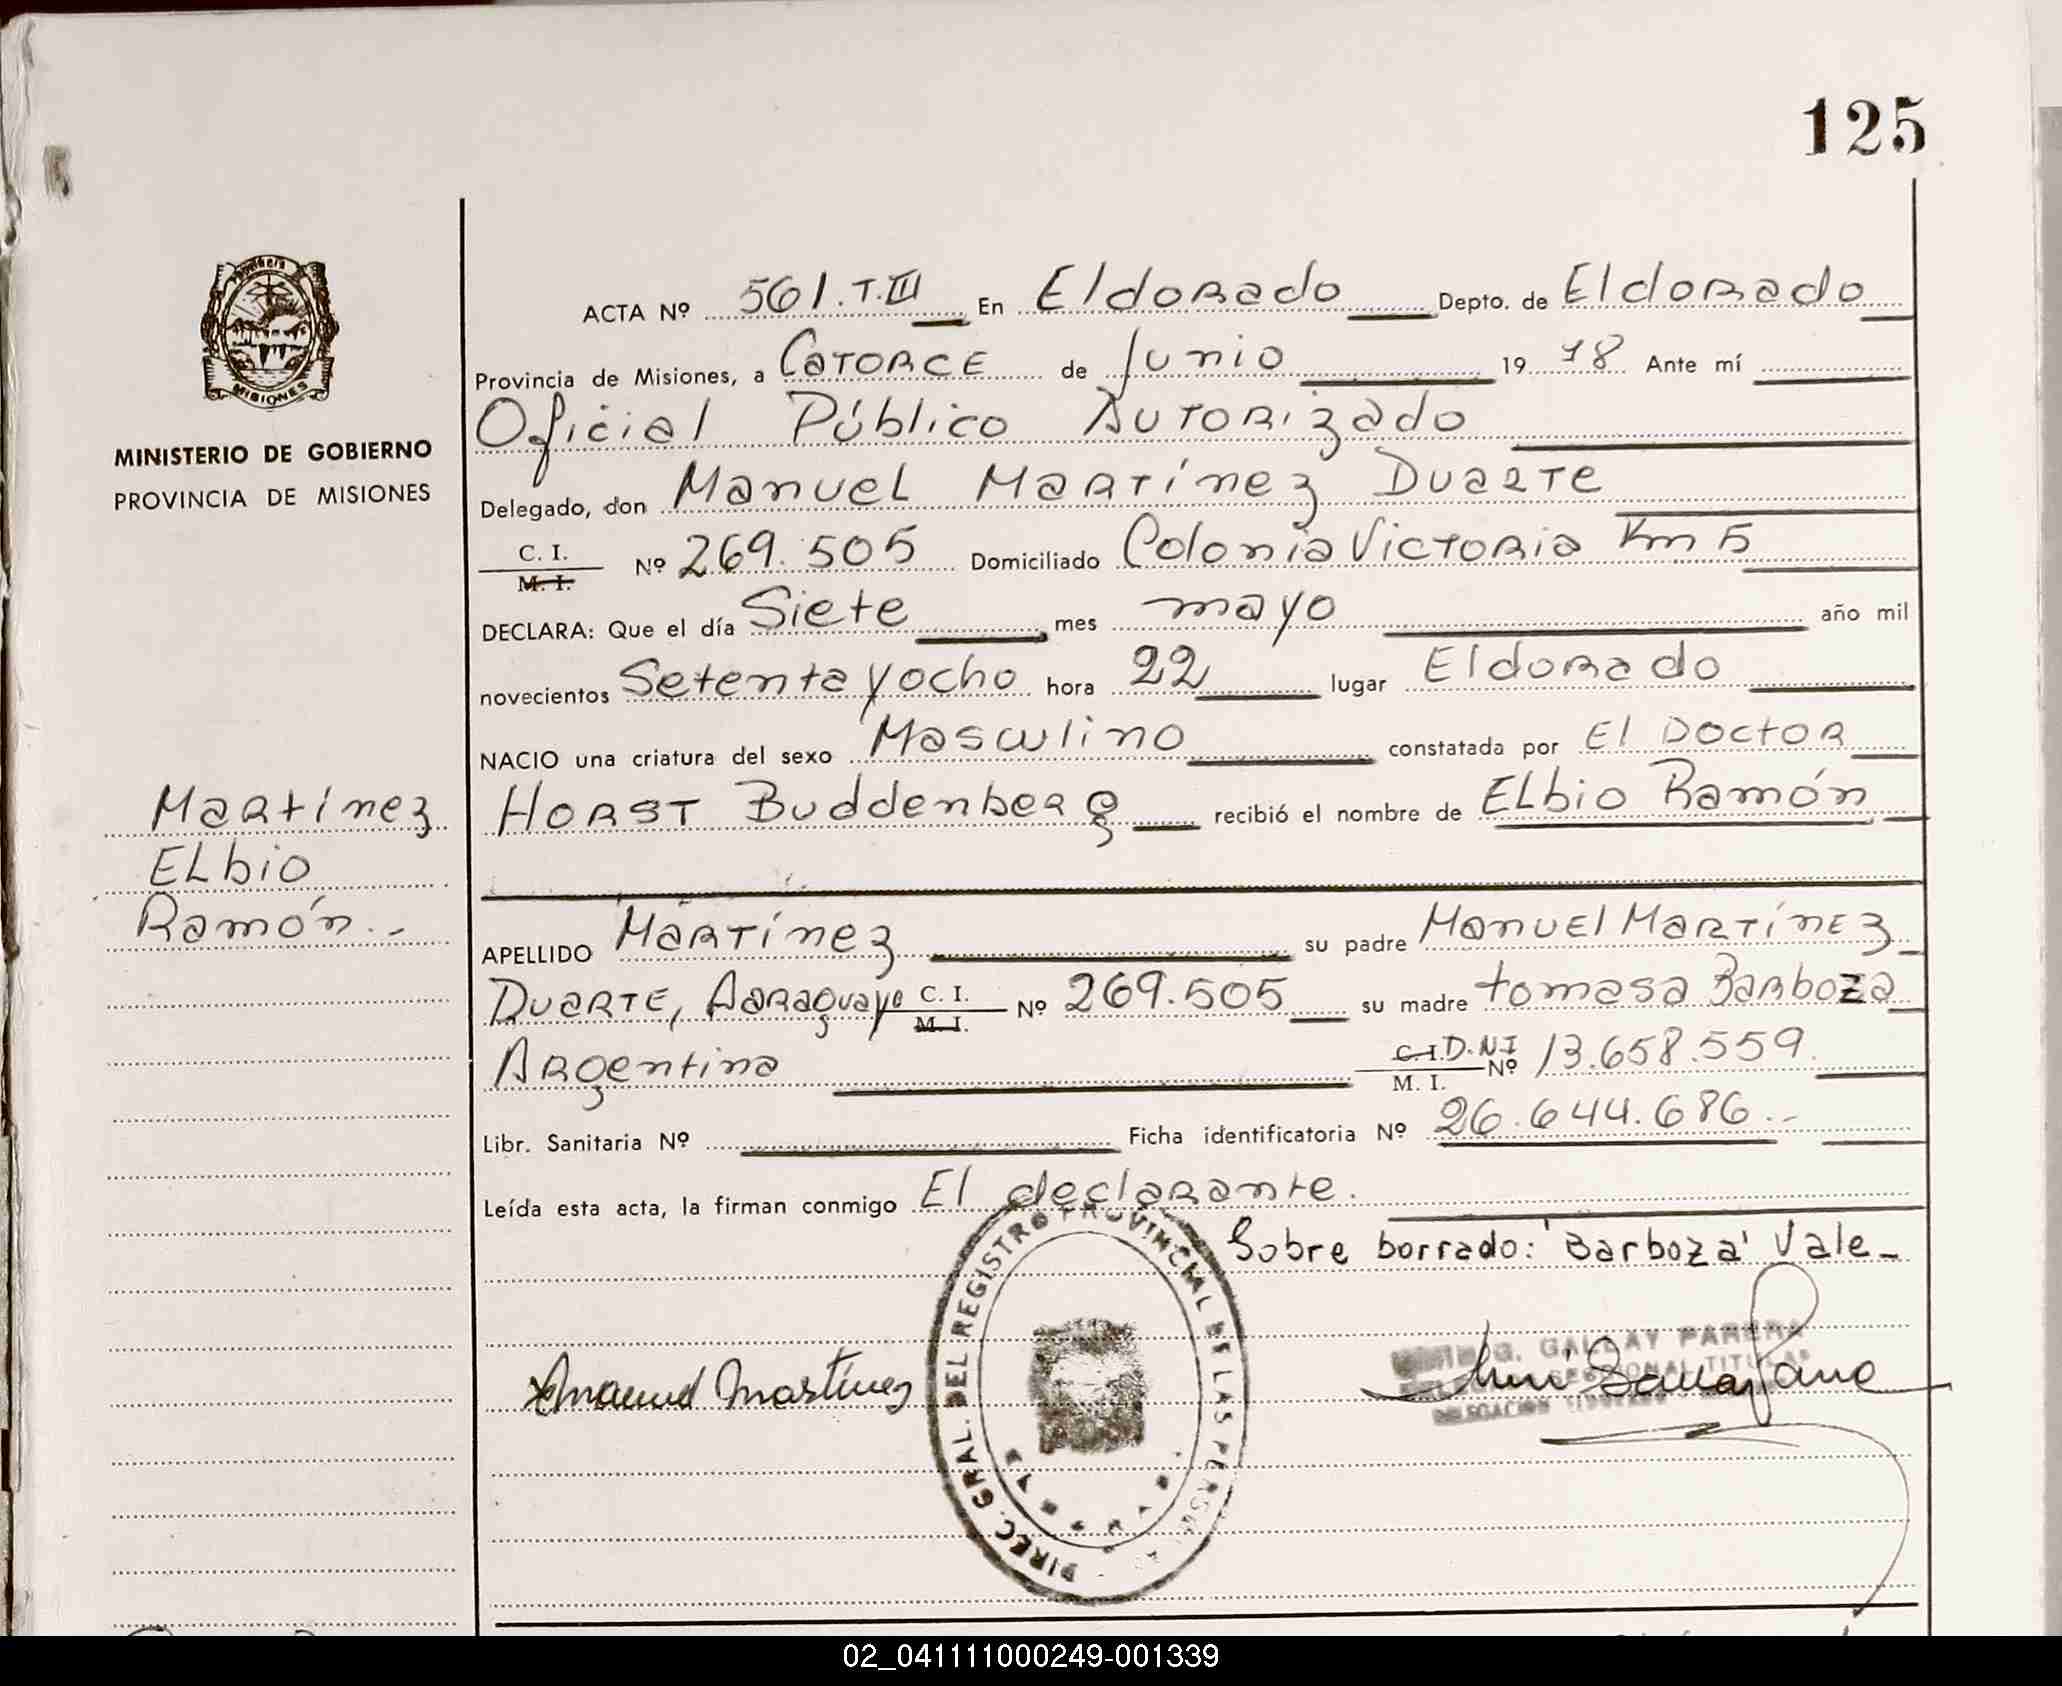 125
MISIONES
MINISTERIO DE GOBIERNO
PROVINCIA DE MISIONES
Martínez
ELbio
Ramón.-
ACTA Nº 561.T.III En Eldorado Depto. de Eldorado
Provincia de Misiones, a Catorce de Junio 19 78 Ante mí
Oficial Público Autorizado
Delegado, don Manuel Martínez Duarte
C. I. M. I. Nº 269.505 Domiciliado Colonia Victoria Km 5
DECLARA: Que el día Siete mes mayo año mil
novecientos Setenta y ocho hora 22 lugar Eldorado
NACIO una criatura del sexo Masculino constatada por El Doctor
Horst Buddenberg recibió el nombre de ELbio Ramón
APELLIDO Martínez su padre Manuel Martínez
Duarte, Paraguayo C. I. M. I. Nº 269.505 su madre tomasa Barboza
Argentina C. I. D.N.I M. I. Nº 13.658.559
Libr. Sanitaria Nº Ficha identificatoria Nº 26.644.686.-
Leída esta acta, la firman conmigo El declarante.
Sobre borrado: 'Barboza' Vale-
Manuel Martínez
DIREC. GRAL. DEL REGISTRO PROVINCIAL DE LAS PERSONAS
G. GALLAY PARERA
TITULAR
DELEGACION
02_041111000249-001339